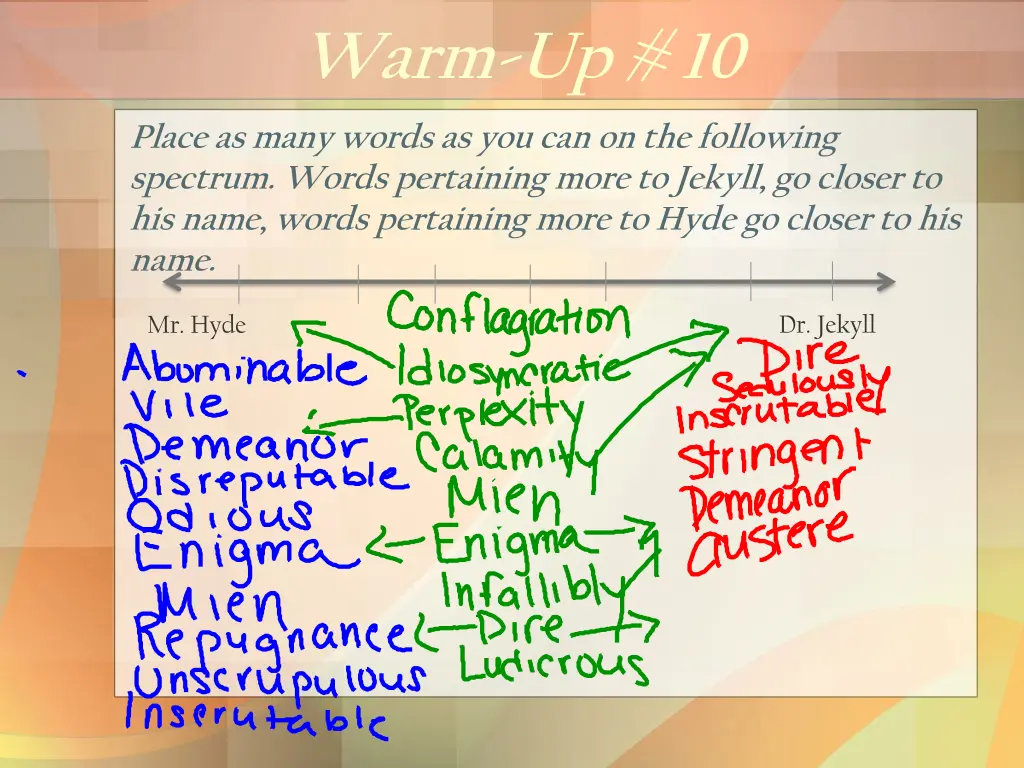 Warm-Up # 10
Place as many words as you can on the following
spectrum. Words pertaining more to Jekyll, go closer to
his name, words pertaining more to Hyde go closer to his
name.
Mr. Hyde
Dr. Jekyll
Abominable
Vile
Demeanor
Disreputable
Odious
Enigma
Mien
Repugnance
Unscrupulous
Inscrutable
Conflagration
Idiosyncratic
Perplexity
Calamity
Mien
Enigma
Infallibly
Dire
Ludicrous
Dire
Sedulously
Inscrutable
Stringent
Demeanor
austere